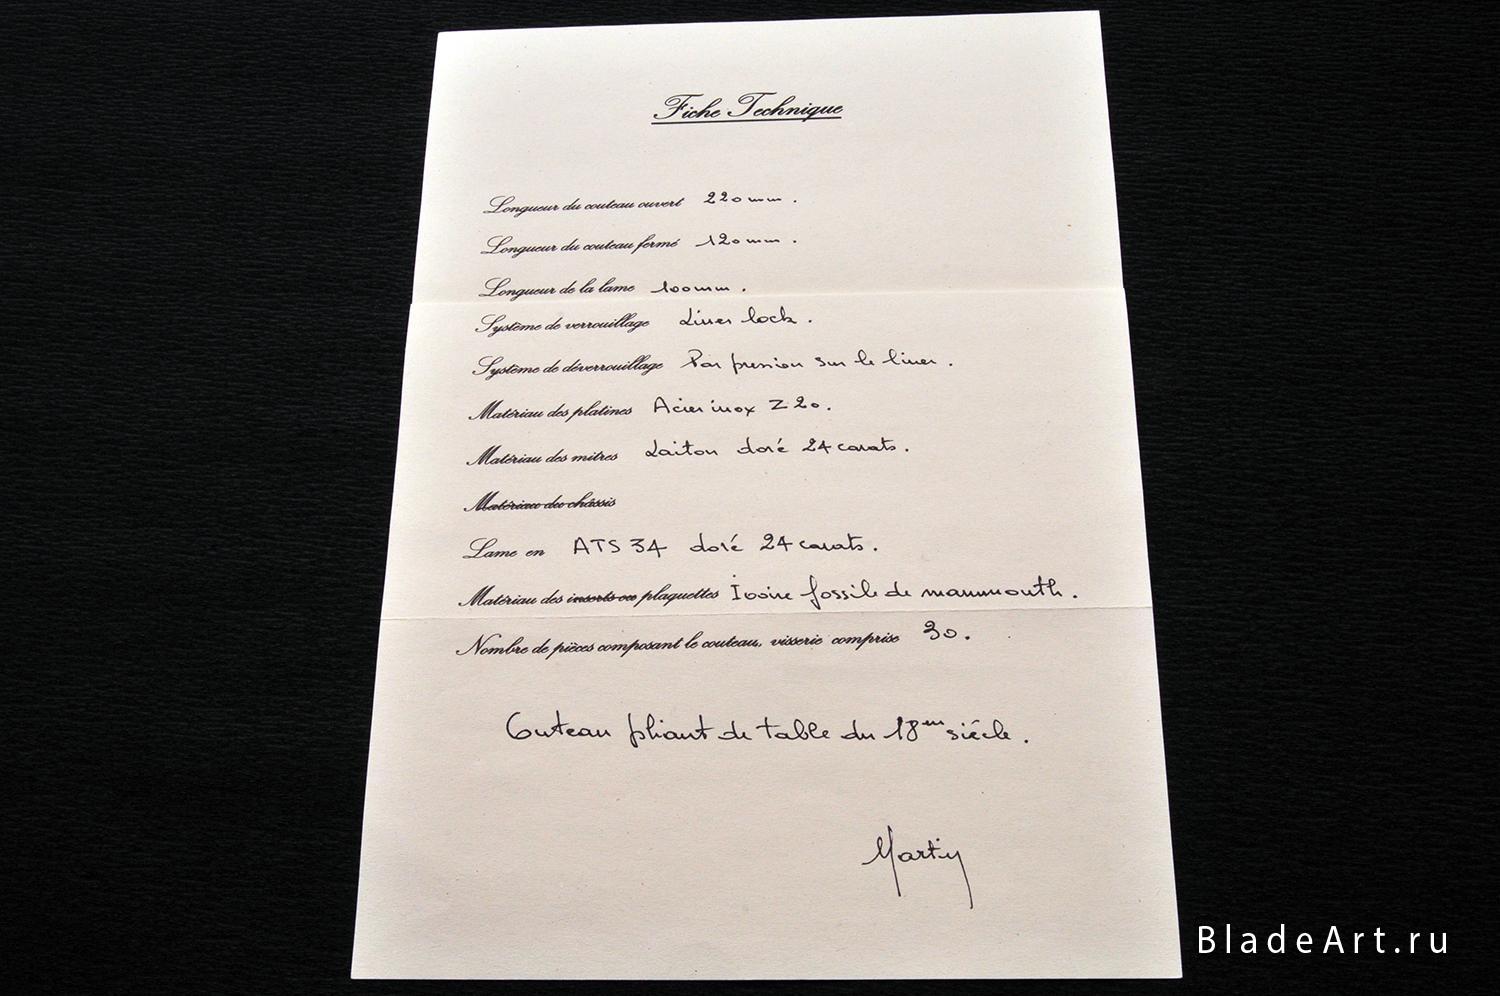 Fiche Technique
Longueur du couteau ouvert 220 mm.
Longueur du couteau fermé 120 mm.
Longueur de la lame 100 mm.
Système de verrouillage Liner lock.
Système de déverrouillage Par pression sur le liner.
Matériau des platines Acier inox Z20.
Matériau des mitres Laiton doré 24 carats.
Matériau du châssis
Lame en ATS 34 doré 24 carats.
Matériau des inserts ou plaquettes Ivoire fossile de mammouth.
Nombre de pièces composant le couteau, visserie comprise 30.
Couteau pliant de table du 18em siécle.
Martiy
BladeArt.ru